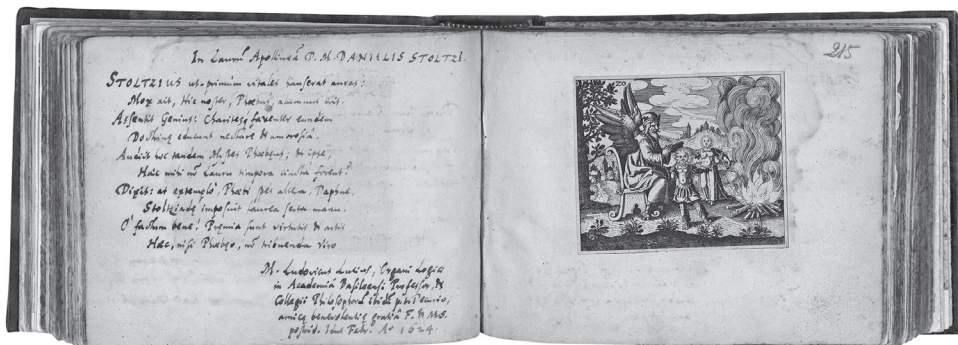 In Laurū Apollineā D. M. DANIELIS STOLTZI.
STOLTZIUS ut primùm vitales hauserat auras:
Mox ait, Hic noster, Phœbus, alumnus erit.
Assensit Genius: Charitesq; faventer eundem
Doctrinę educunt nectare & ambrosiâ.
Audiit hoc tandem Phœbus; & ipse,
Hæc mihi nō Lauru tempora cincta forent?
Dixit: at extemplò, Phœbi spes altera, Daphne
Stoltziadę imposuit laurea serta manu.
O factum bene! Pręmia sunt virtutis & artis
Hæc, nisi Phœbęo, nō tribuenda viro
M. Ludovicus Lucius, Organi Logici
in Academiâ Basileensi Professor, &
Collegii Philosophorū ibidē
amicę benevolentię gratiâ F. &
postrid. Febr. Aº 1624.
215
20